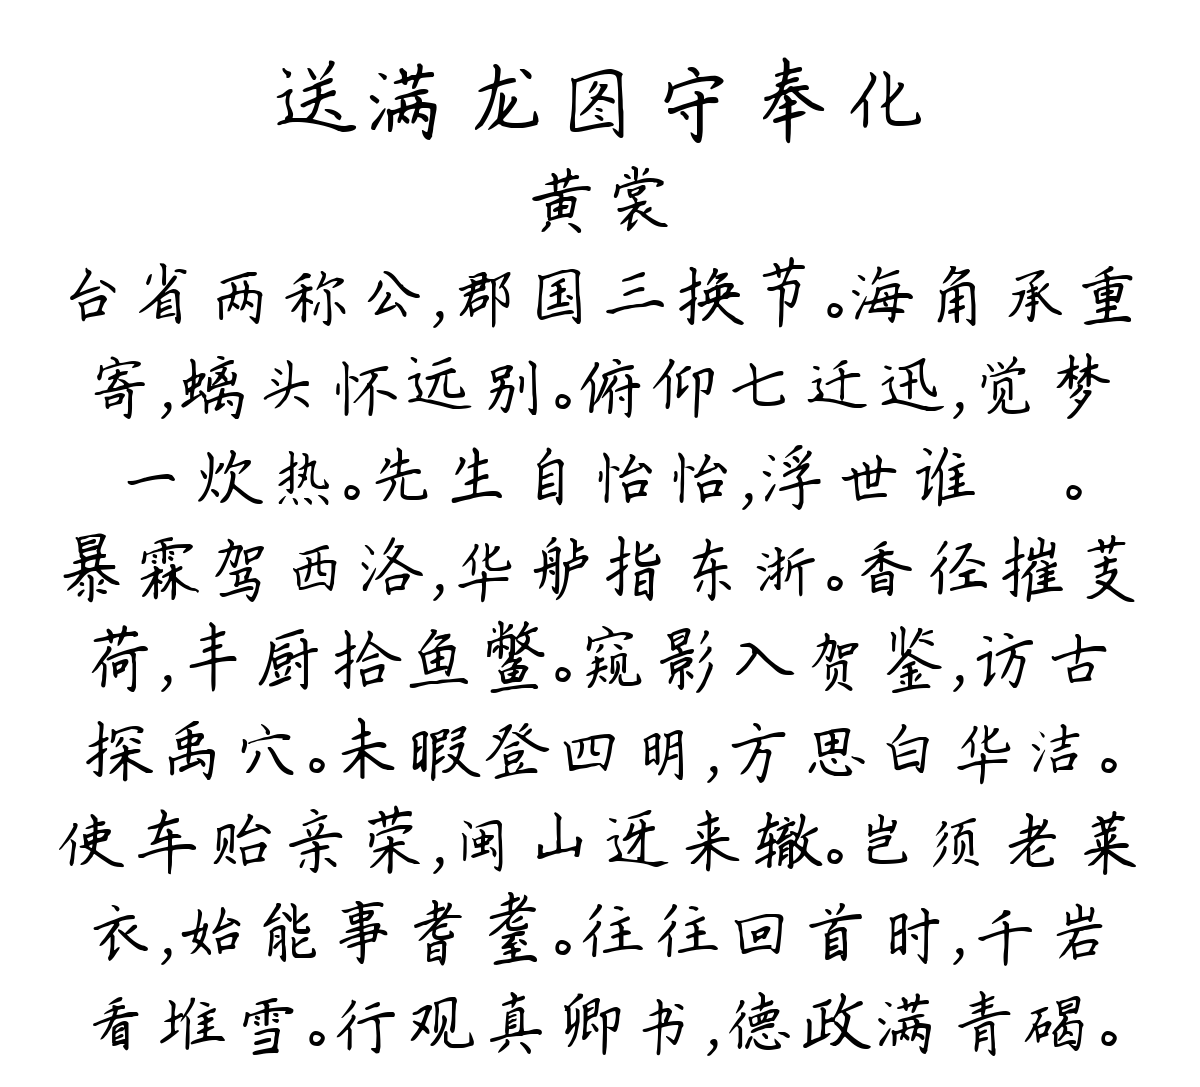 送满龙图守奉化
黄裳
台省两称公,郡国三换节。海角承重
寄,螭头怀远别。俯仰七迁迅,觉梦
一炊热。先生自怡怡,浮世谁 。
暴霖驾西洛,华舻指东浙。香径摧芰
荷,丰厨拾鱼鳖。窥影入贺鉴,访古
探禹穴。未暇登四明,方思白华洁。
使车贻亲荣,闽山迓来辙。岂须老莱
衣,始能事耆耋。往往回首时,千岩
看堆雪。行观真卿书,德政满青碣。